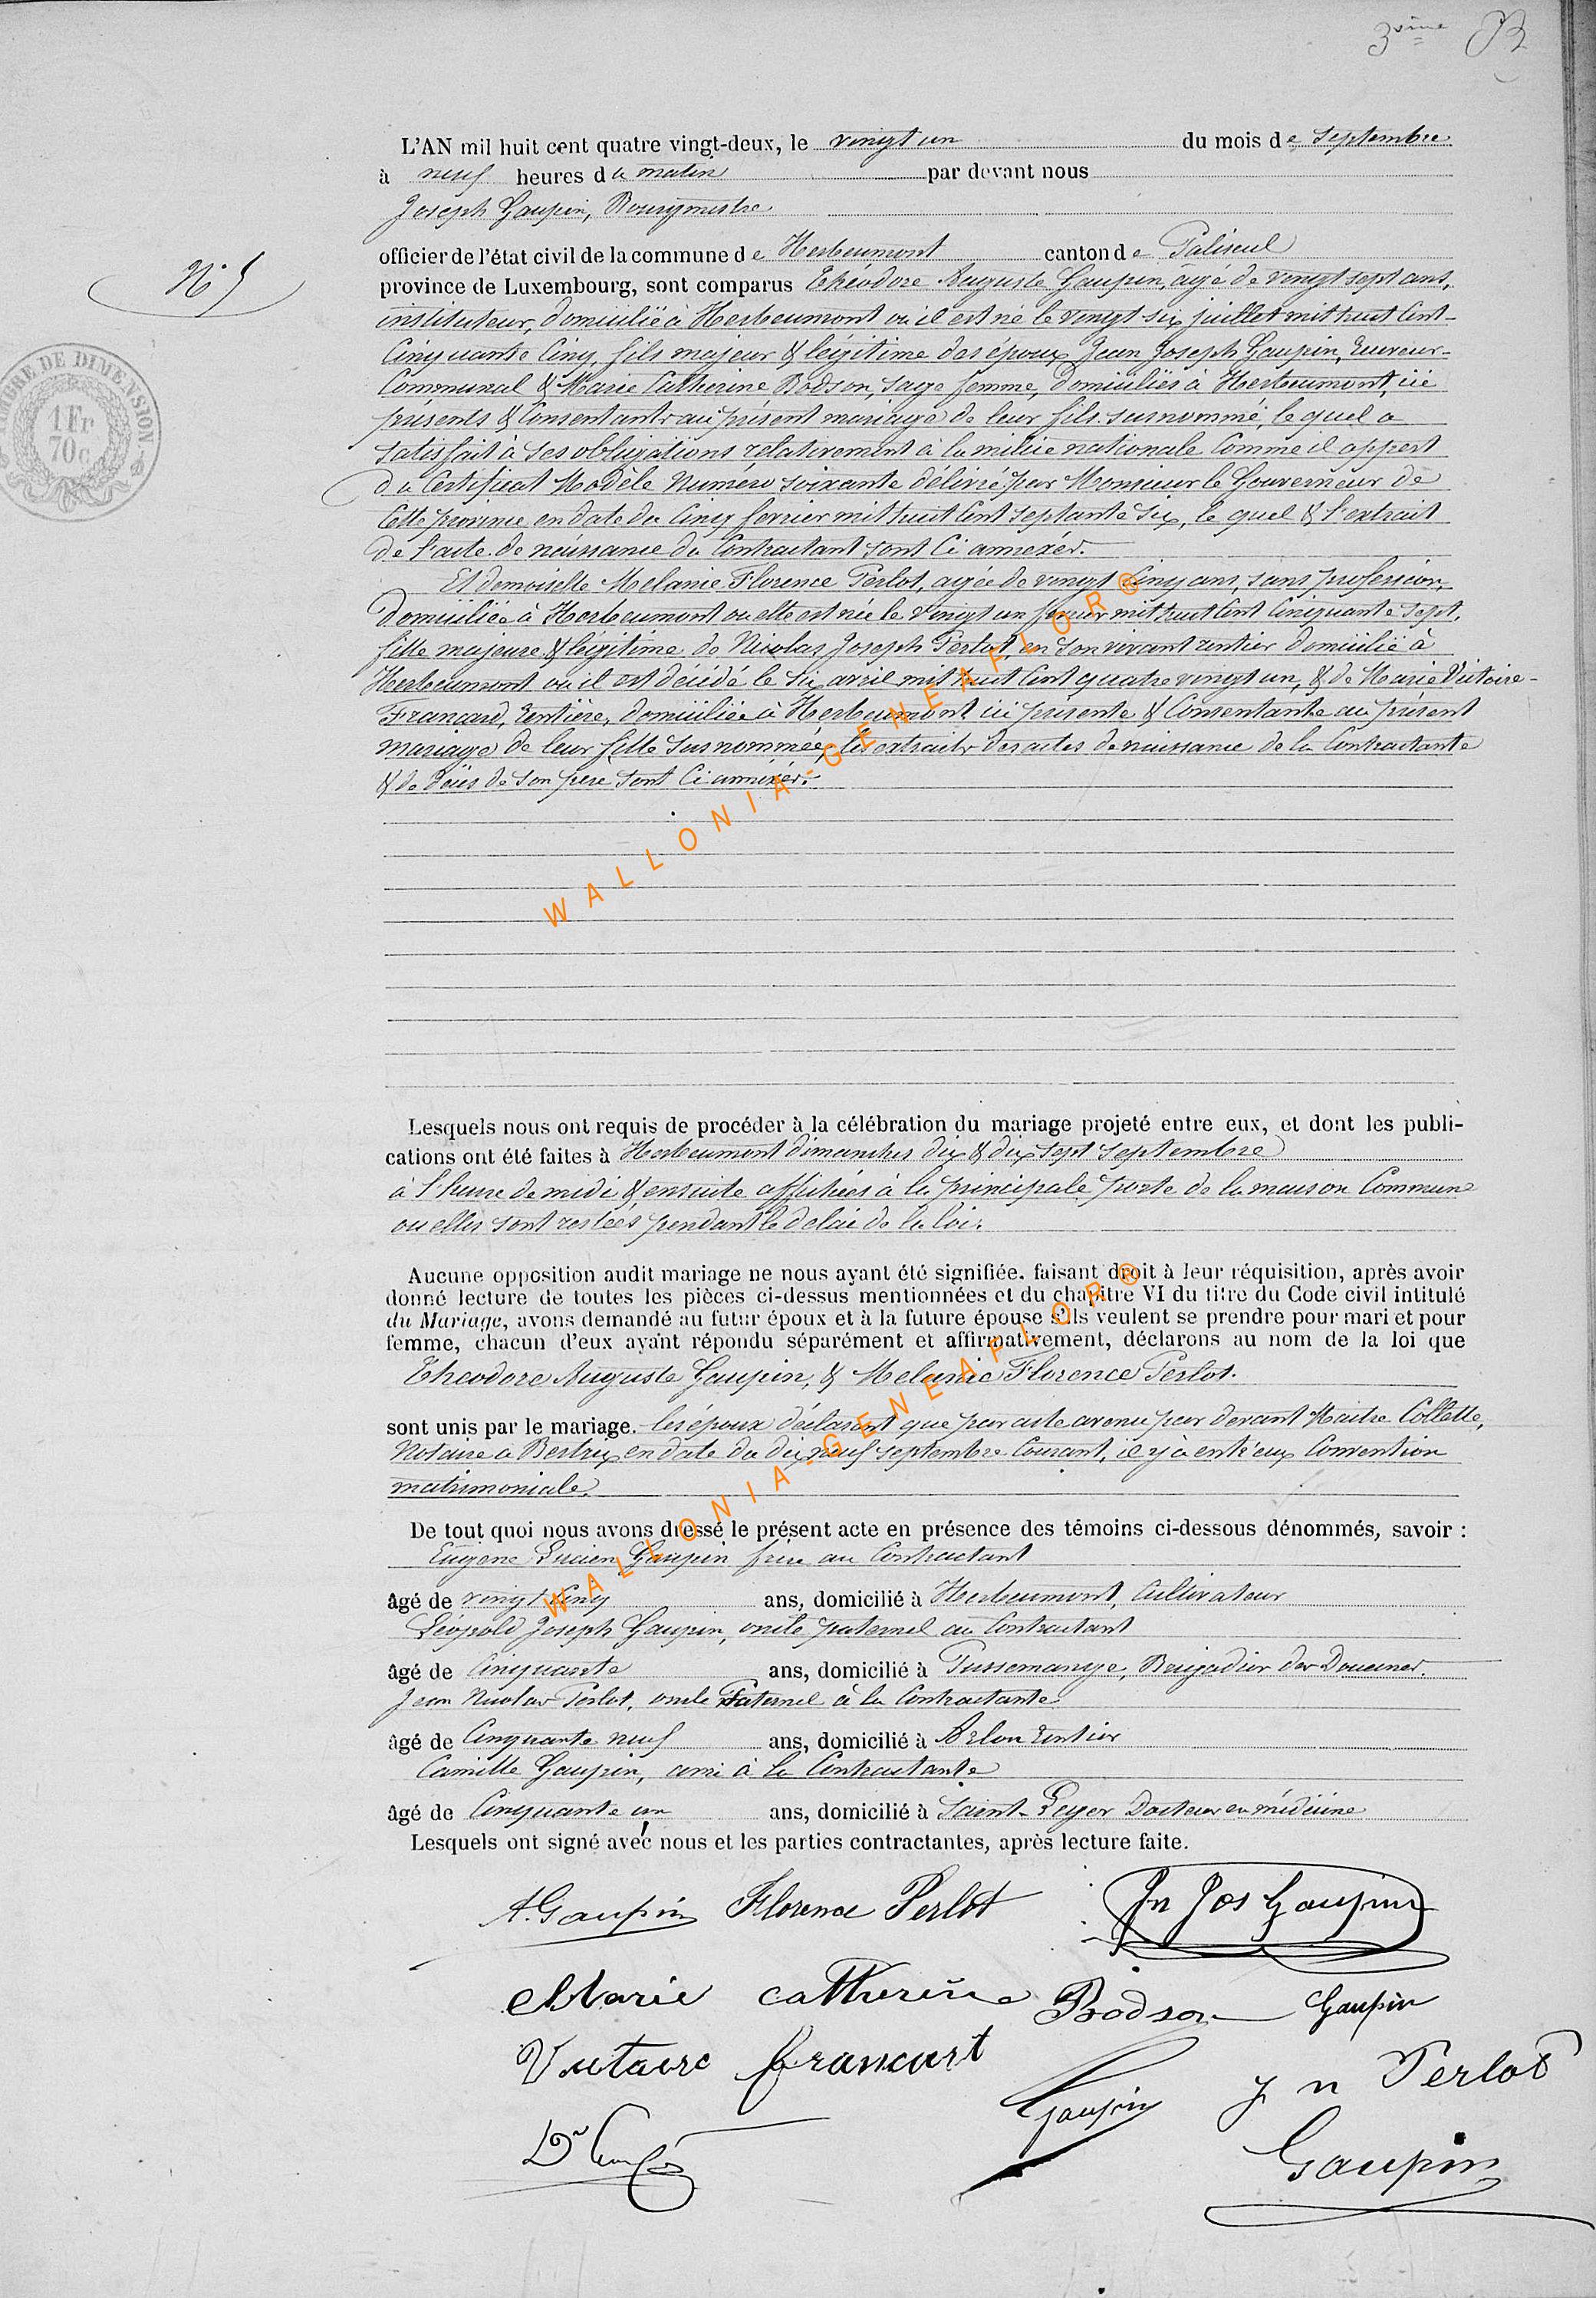 3ème
L'AN mil huit cent quatre vingt-deux, le vingt un du mois de septembre
à neuf heures du matin par devant nous
Joseph Gaupin, Bourgmestre
officier de l'état civil de la commune de Herbeumont canton de Paliseul
N° 5
province de Luxembourg, sont comparus Théodore Auguste Gaupin, agé de vingt sept ans,
instituteur, domicilié à Herbeumont ou il est né le vingt six juillet mil huit cent
cinquante cinq, fils majeur & légitime des époux Jean Joseph Gaupin, receveur
communal & Marie Catherine Bodson, sage femme, domiciliés à Herbeumont, ici
présents & consentants au présent mariage de leur fils susnommé, le quel a
satisfait à ses obligations relativement à la milice nationale comme il appert
du certificat Modèle Numéro soixante délivré par Monsieur le Gouverneur de
cette province en date du cinq fevrier mil huit cent septante six, le quel & l'extrait
de l'acte de naissance du contractant sont ci annexés.
Et demoiselle Melanie Florence Perlot, agée de vingt cinq ans, sans profession,
domiciliée à Herbeumont ou elle est née le vingt un mil huit cent cinquante sept,
fille majeure & légitime de Nicolas Joseph Perlot, en son vivant rentier domicilié à
Herbeumont ou il est décédé le six avril mil huit cent quatre vingt un, & de Marie Victoire
Françard, rentière, domiciliée à Herbeumont ici présente & consentante au présent
mariage de leur fille susnommée, les extraits des actes de naissance de la contractante
& de décès de son pere sont ci annexés.
TIMBRE DE DIMENSION
1 Fr
70 c
WALLONIA-GENEAFLOR®
Lesquels nous ont requis de procéder à la célébration du mariage projeté entre eux, et dont les publi-
cations ont été faites à Herbeumont dimanches dix & dix sept septembre
à l'heure de midi & ensuite affichées à la principale porte de la maison commune
ou elles sont restées pendant le delai de la loi.
Aucune opposition audit mariage ne nous ayant été signifiée, faisant droit à leur réquisition, après avoir
donné lecture de toutes les pièces ci-dessus mentionnées et du chapitre VI du titre du Code civil intitulé
du Mariage, avons demandé au futur époux et à la future épouse s'ils veulent se prendre pour mari et pour
femme, chacun d'eux ayant répondu séparément et affirmativement, déclarons au nom de la loi que
Theodore Auguste Gaupin, & Melanie Florence Perlot.
sont unis par le mariage. les époux déclarent que par acte avenu par devant Maitre Collette,
Notaire a Bertrix en date du dix neuf septembre courant, il y à entr'eux convention
matrimoniale.
WALLONIA-GENEAFLOR®
De tout quoi nous avons dressé le présent acte en présence des témoins ci-dessous dénommés, savoir :
Eugène Lucien Gaupin frère au contractant
âgé de vingt cinq ans, domicilié à Herbeumont, cultivateur
Léopold Joseph Gaupin, oncle paternel au contractant
âgé de cinquante ans, domicilié à Pussemange, Brigadier des Douanes.
Jean Nicolas Perlot, oncle Paternel à la contractante
âgé de cinquante neuf ans, domicilié à Arlon rentier
Camille Gaupin, ami à la contractante
âgé de cinquante un ans, domicilié à Saint-Leger Docteur en médicine
Lesquels ont signé avec nous et les parties contractantes, après lecture faite.
A. Gaupin Florence Perlot Jn Jos Gaupin
Marie catherine Bodson Gaupin
Victoire francart Gaupin J n Perlot
Gaupin